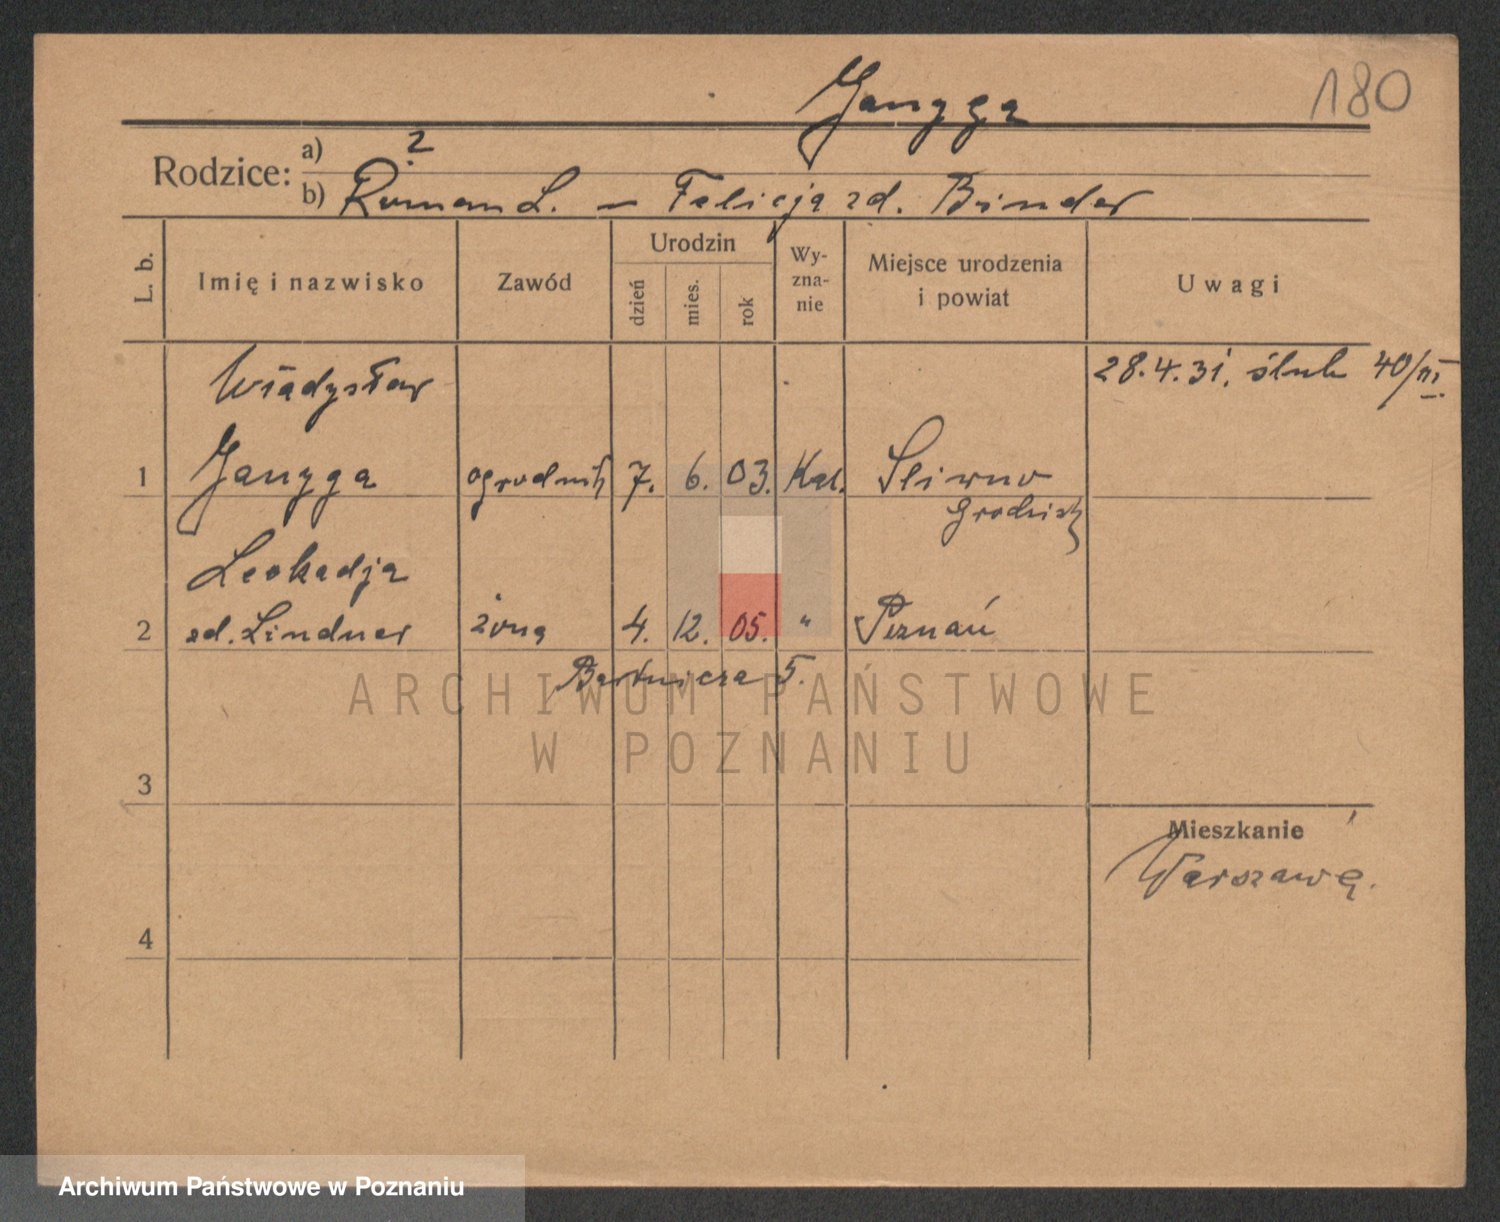 180
Jangga
Rodzice: a) ?
b) Roman L. – Felicja zd. Binder
L. b. Imię i nazwisko Zawód Urodzin dzień mies. rok Wy-zna-nie Miejsce urodzenia i powiat Uwagi
Władysław 28.4.31. ślub 40/III.
1 Jangga ogrodnik 7. 6. 03. Kat. Sliwno
Grodzisk
Leokadja
2 zd. Lindner żona 4. 12. 05. " Poznań
Bartnicza 5.
ARCHIWUM PAŃSTWOWE
W POZNANIU
3
Mieszkanie
Warszawa.
4
Archiwum Państwowe w Poznaniu